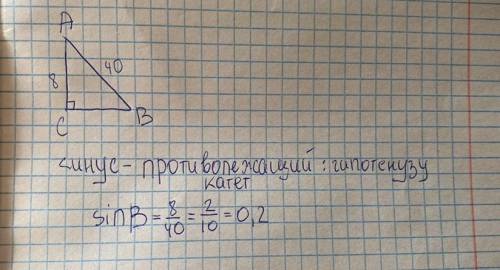 A
40
8
C
B
синус - противолежащий : гипотенузу
катет
sinB = 8/40 = 2/10 = 0,2